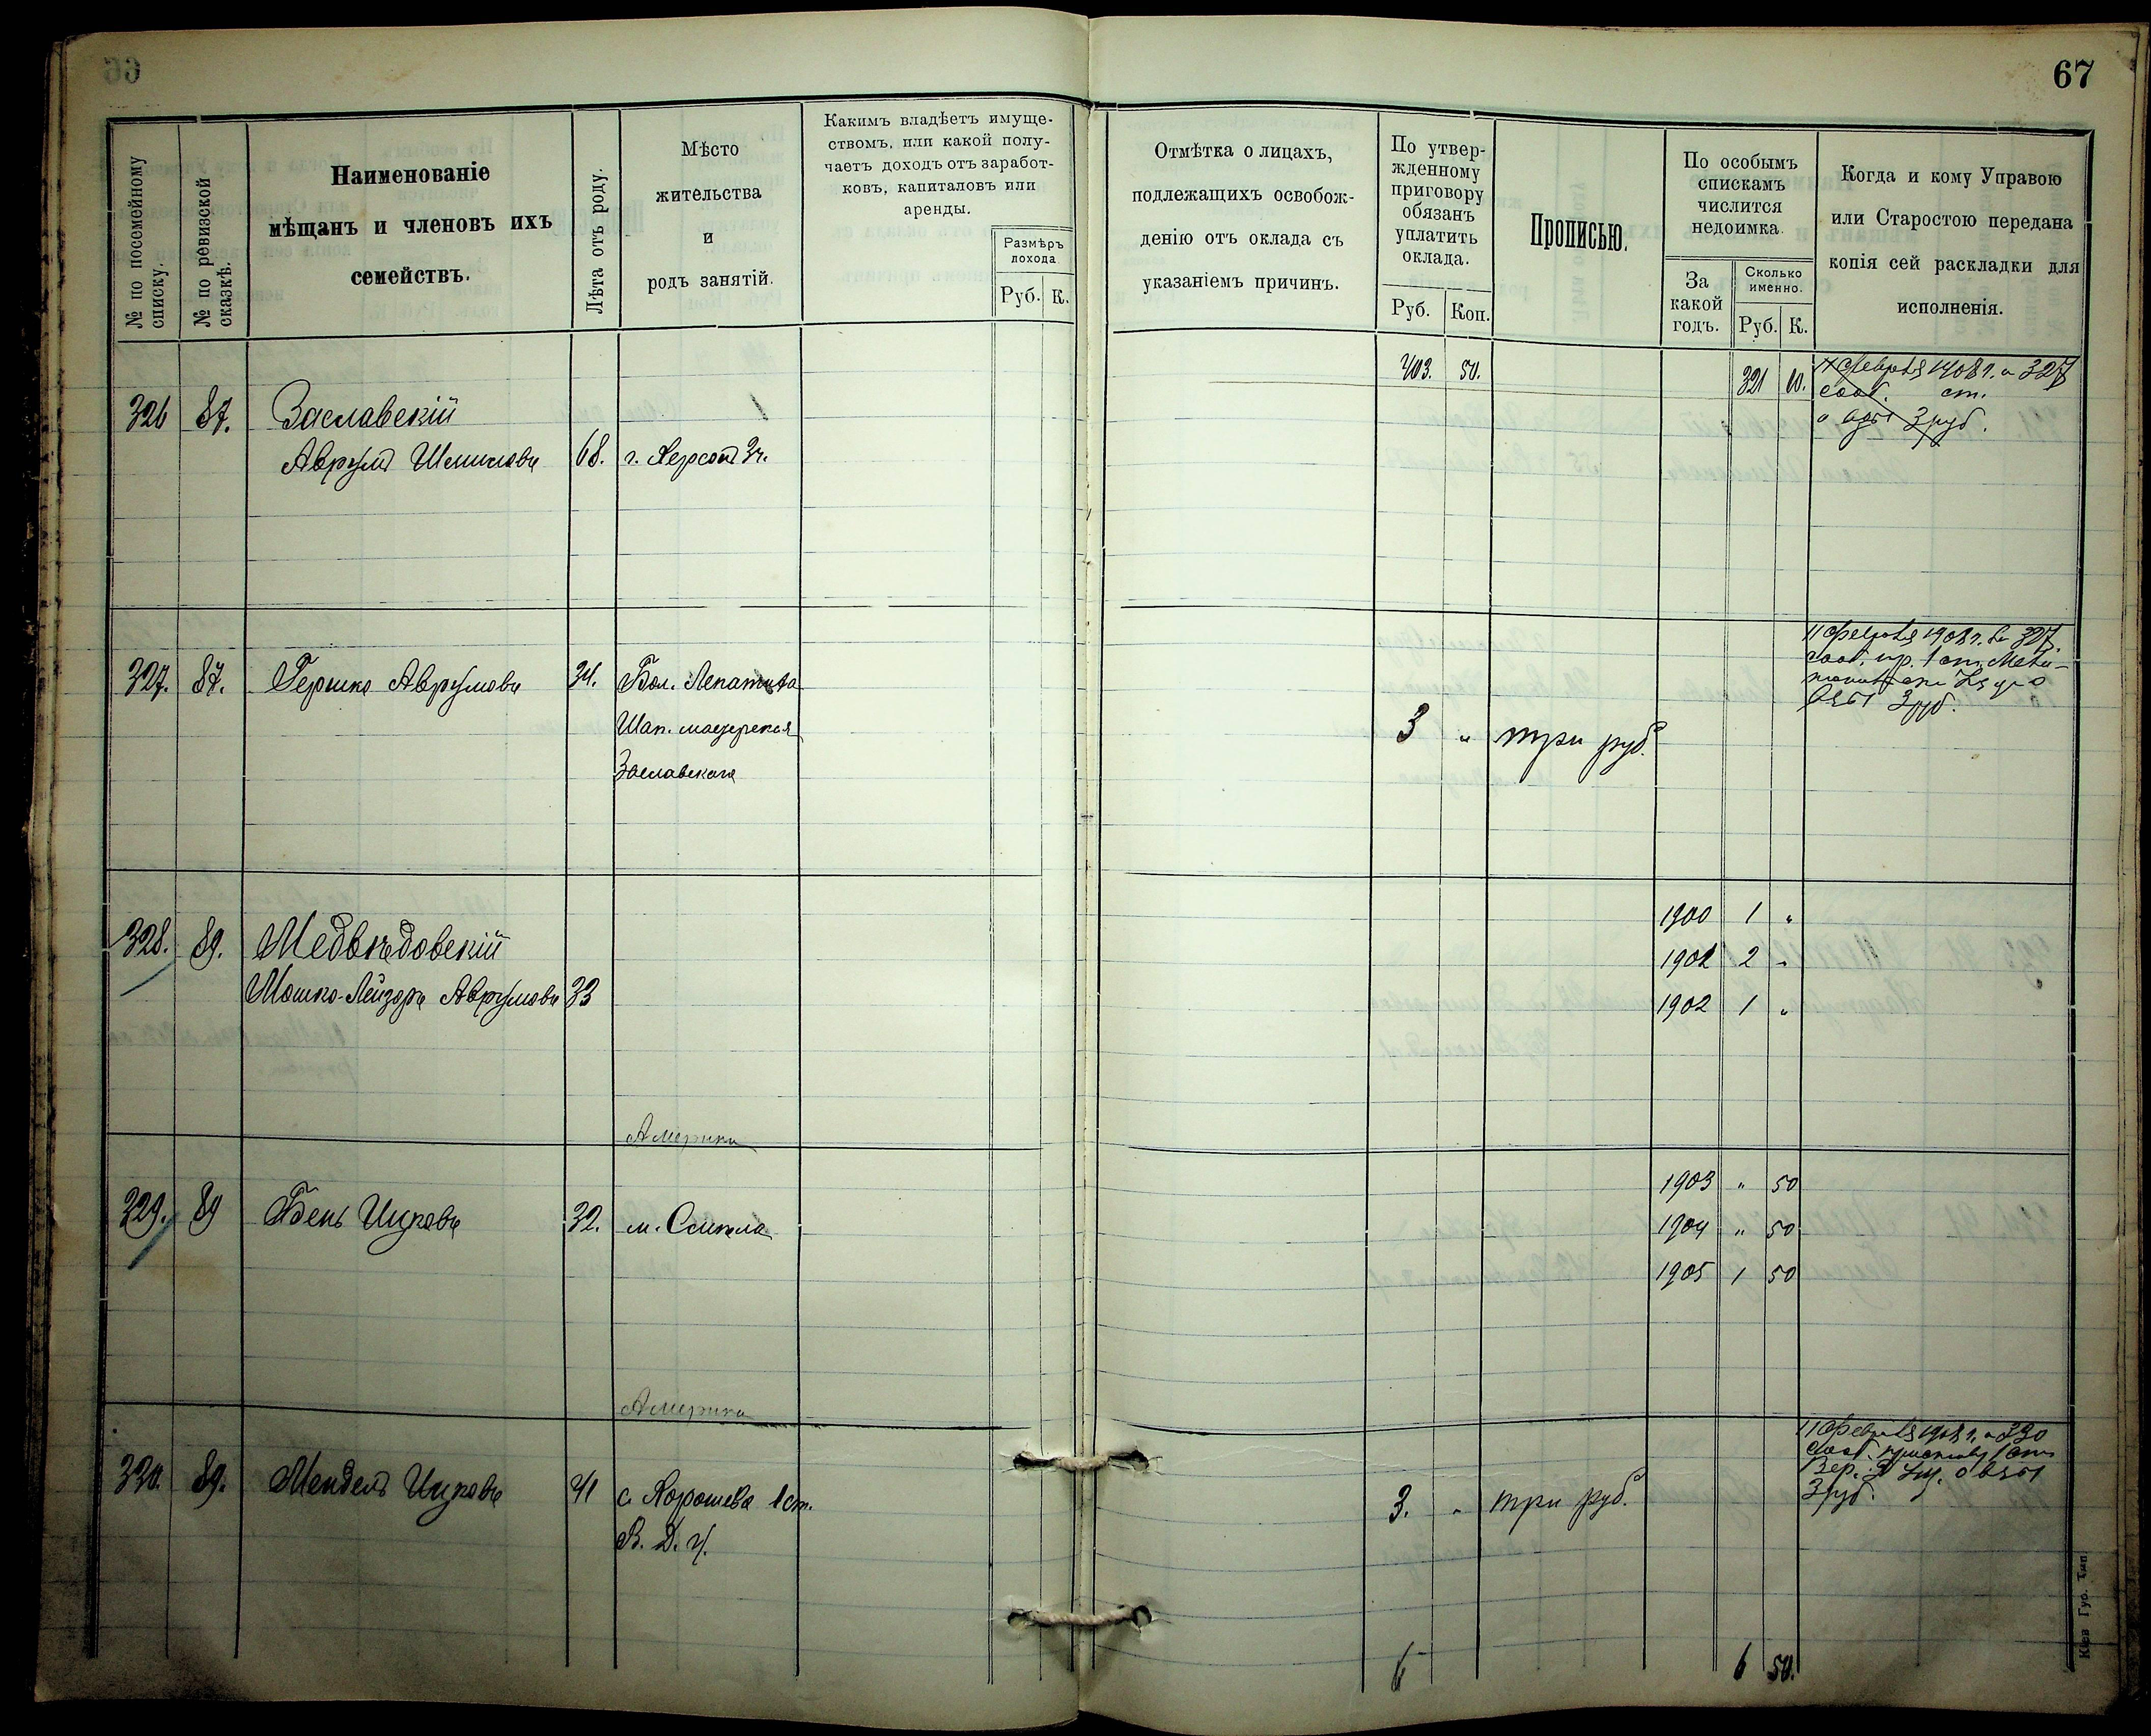 66
67
№ по посемейному списку.
№ по ревизской сказкѣ.
Наименованіе
мѣщанъ и членовъ ихъ
семействъ.
Лѣта отъ роду.
Мѣсто
жительства
и
родъ занятій.
Какимъ владѣетъ имуще-
ствомъ, или какой полу-
чаетъ доходъ отъ заработ-
ковъ, капиталовъ или
аренды.
Размѣръ
дохода
Руб. К.
Отмѣтка о лицахъ,
подлежащихъ освобож-
денію отъ оклада съ
указаніемъ причинъ.
По утвер-
жденному
приговору
обязанъ
уплатить
оклада.
Руб. Коп.
Прописью.
По особымъ
спискамъ
числится
недоимка.
За
какой
годъ.
Сколько
именно.
Руб. К.
Когда и кому Управою
или Старостою передана
копія сей раскладки для
исполненія.
403. 50.
321 60.
11 февраля 1908 г. 327
сооб. ст.
3 руб.
326 87. Заславскій
Аврумъ 68. г. Херсонъ 3 ч.
327. 87. Гершко Аврумовъ 34.
Шап. мастерская
Заславскаго
3 " три руб.
11 февраля 1908 г. 327.
сооб. пр. 1 ст.
3 руб.
328. 89. Медвѣдовскій
Мошко-Лейзоръ Аврумовъ 33
1900 1 "
1901 2 "
1902 1 "
Америка
329. 89 Бень Ицковъ 32. м. Смѣла
1903 " 50
1904 " 50
1905 1 50
Америка
330. 89. Мендель Ицковъ 41 с. Хорошева 1 ст.
В. Д. у.
3. " три руб.
11 февраля 1908 г. 330
сооб. 1 ст
3 руб.
6
6 50.
Кіев Губ. Тип